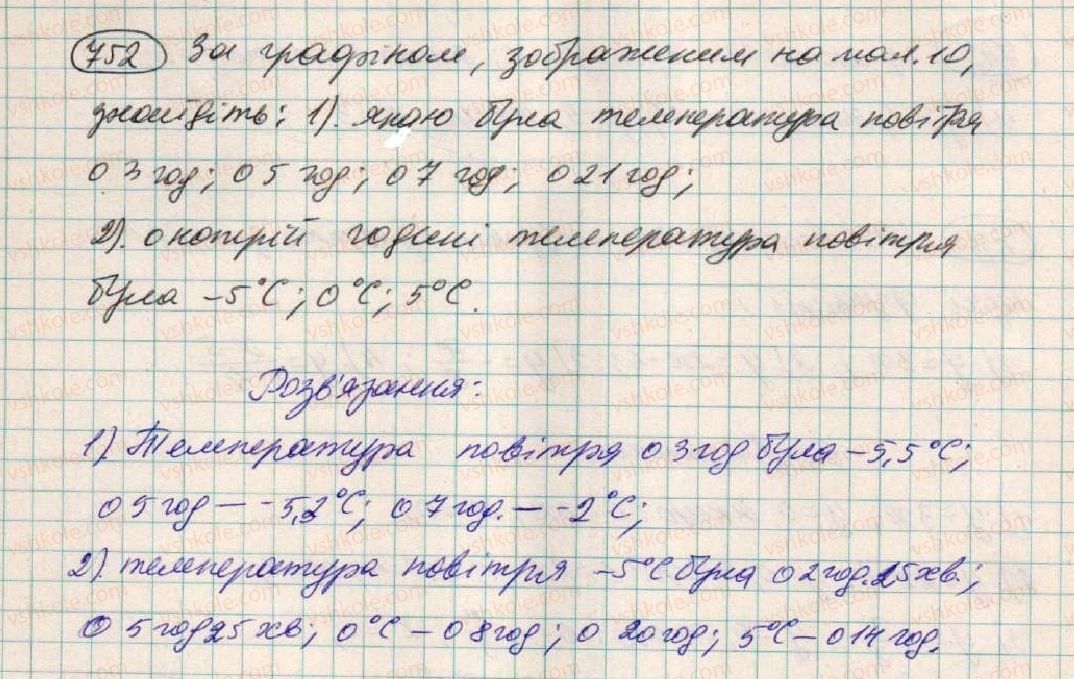 752 За графіком, зображеним на мал. 10,
знайдіть: 1). якою була температура повітря
о 3 год; о 5 год; о 7 год; о 21 год;
2). о котрій годині температура повітря
була -5°C; 0°C; 5°C.
Розв'язання:
1) Температура повітря о 3 год була -5,5°C;
о 5 год — -5,2°C; о 7 год. — -2°C;
2). температура повітря -5°C була о 2 год. 25 хв.;
о 5 год 25 хв; 0°C - о 8 год; о 20 год; 5°C - о 14 год.